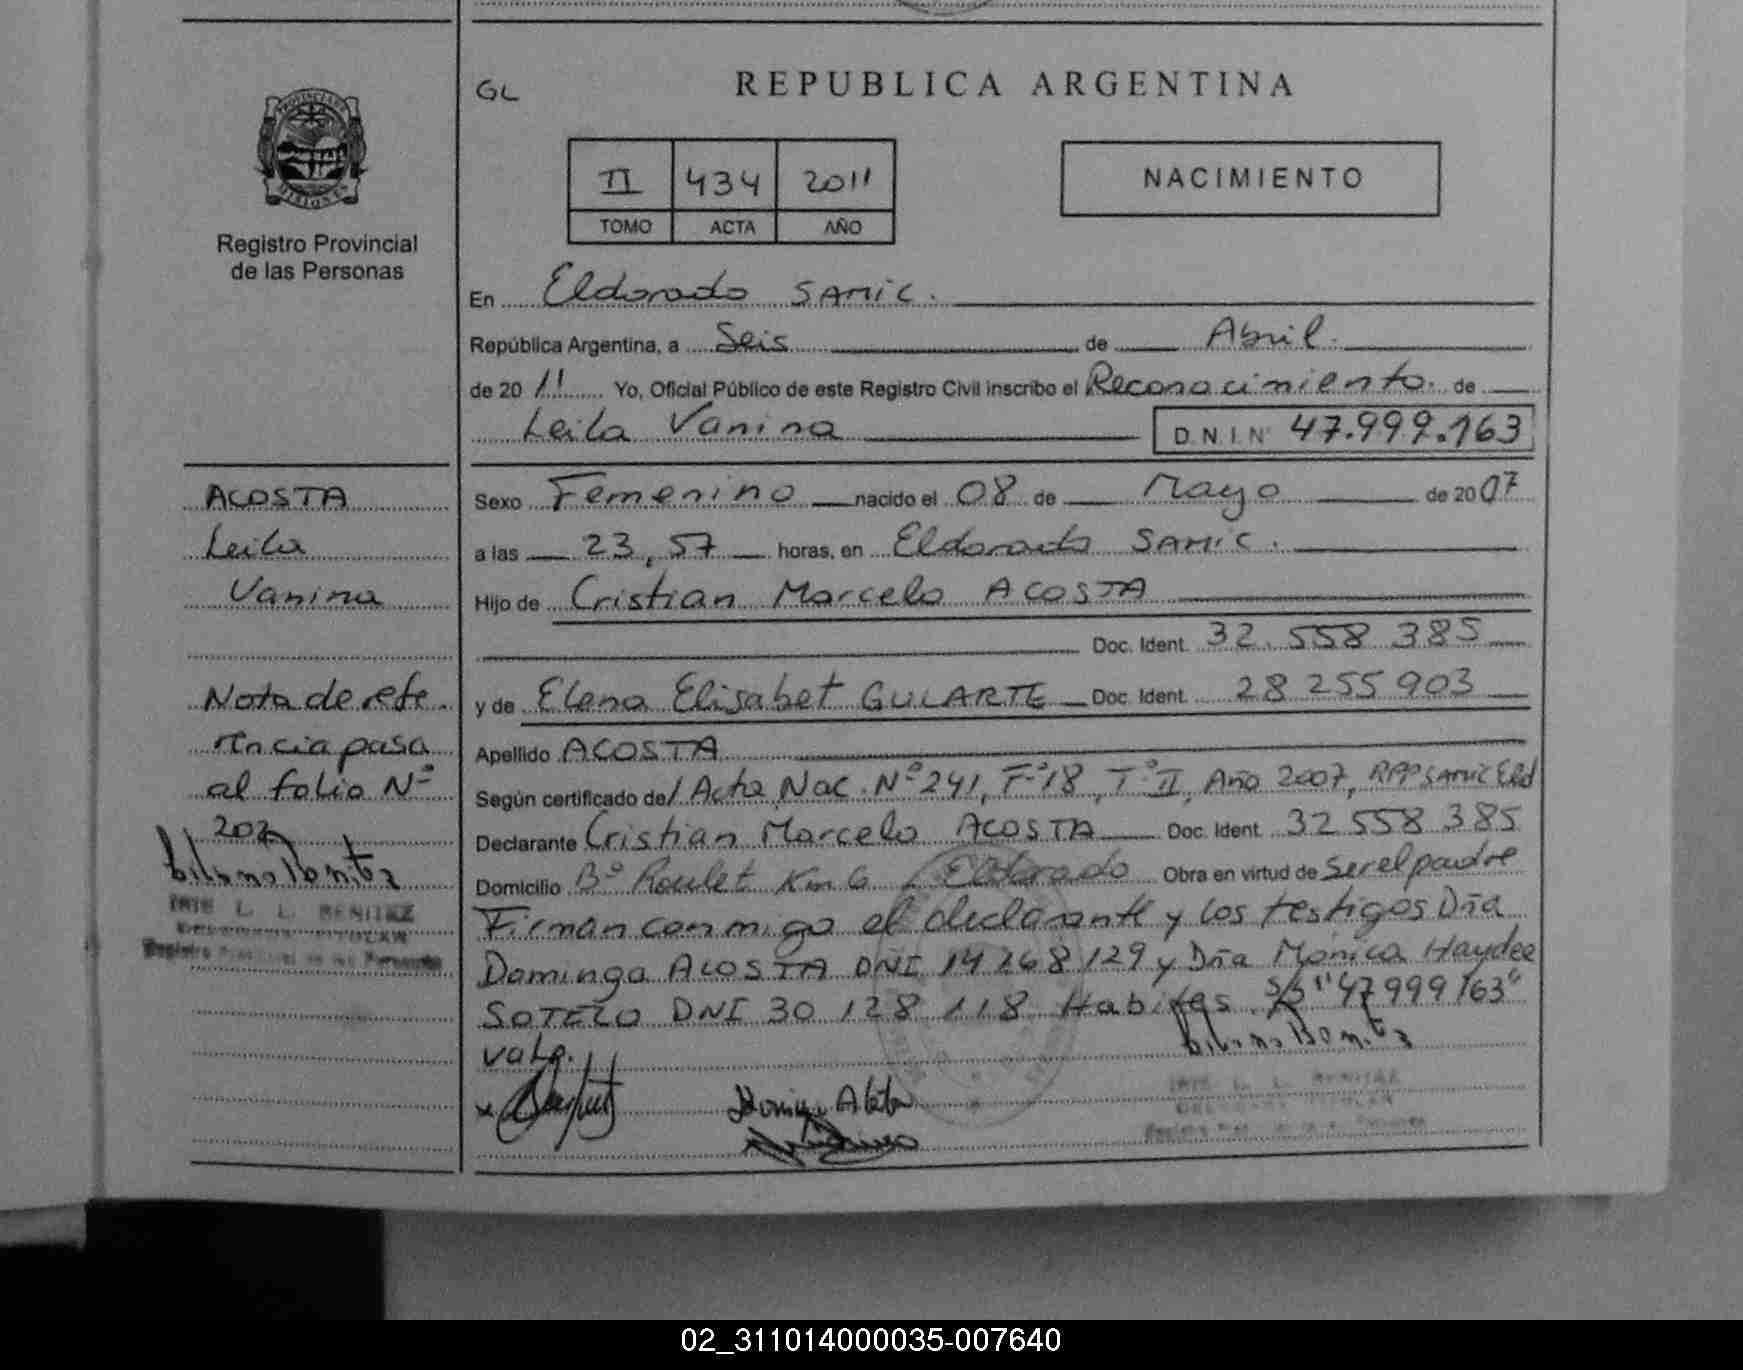 GL
REPUBLICA ARGENTINA
PROVINCIA DE MISIONES
Registro Provincial
de las Personas
II 434 2011
TOMO ACTA AÑO
NACIMIENTO
En Eldorado SAMIC.
República Argentina, a Seis de Abril.
de 2011 Yo, Oficial Público de este Registro Civil inscribo el Reconocimiento. de
Leila Vanina D.N.I.Nº 47.999.163
ACOSTA
Leila
Vanina
Nota de refe
rencia pasa
al folio Nº
202
IRIS L. L. BENITEZ
Registro Provincial de las Personas
Sexo Femenino nacido el 08 de Mayo de 2007
a las 23,57 horas, en Eldorado SAMIC.
Hijo de Cristian Marcelo ACOSTA
Doc. Ident. 32.558 385
y de Elena Elisabet GULARTE Doc. Ident. 28 255 903
Apellido ACOSTA
Según certificado de/ Acta Nac. Nº 241, Fº 18, Tº II, Año 2007, RPP SAMIC Eld
Declarante Cristian Marcelo ACOSTA Doc. Ident. 32 558 385
Domicilio Bº Roulet Km 6 Eldorado Obra en virtud de ser el padre
Firman conmigo el declarante y los testigos Dña
Dominga ACOSTA DNI 14 268 129 y Dña Mónica Haydee
SOTELO DNI 30 128 118 Habiles. S/b "47 999 163"
Vale.
IRIS L. L. BENITEZ
02_311014000035-007640